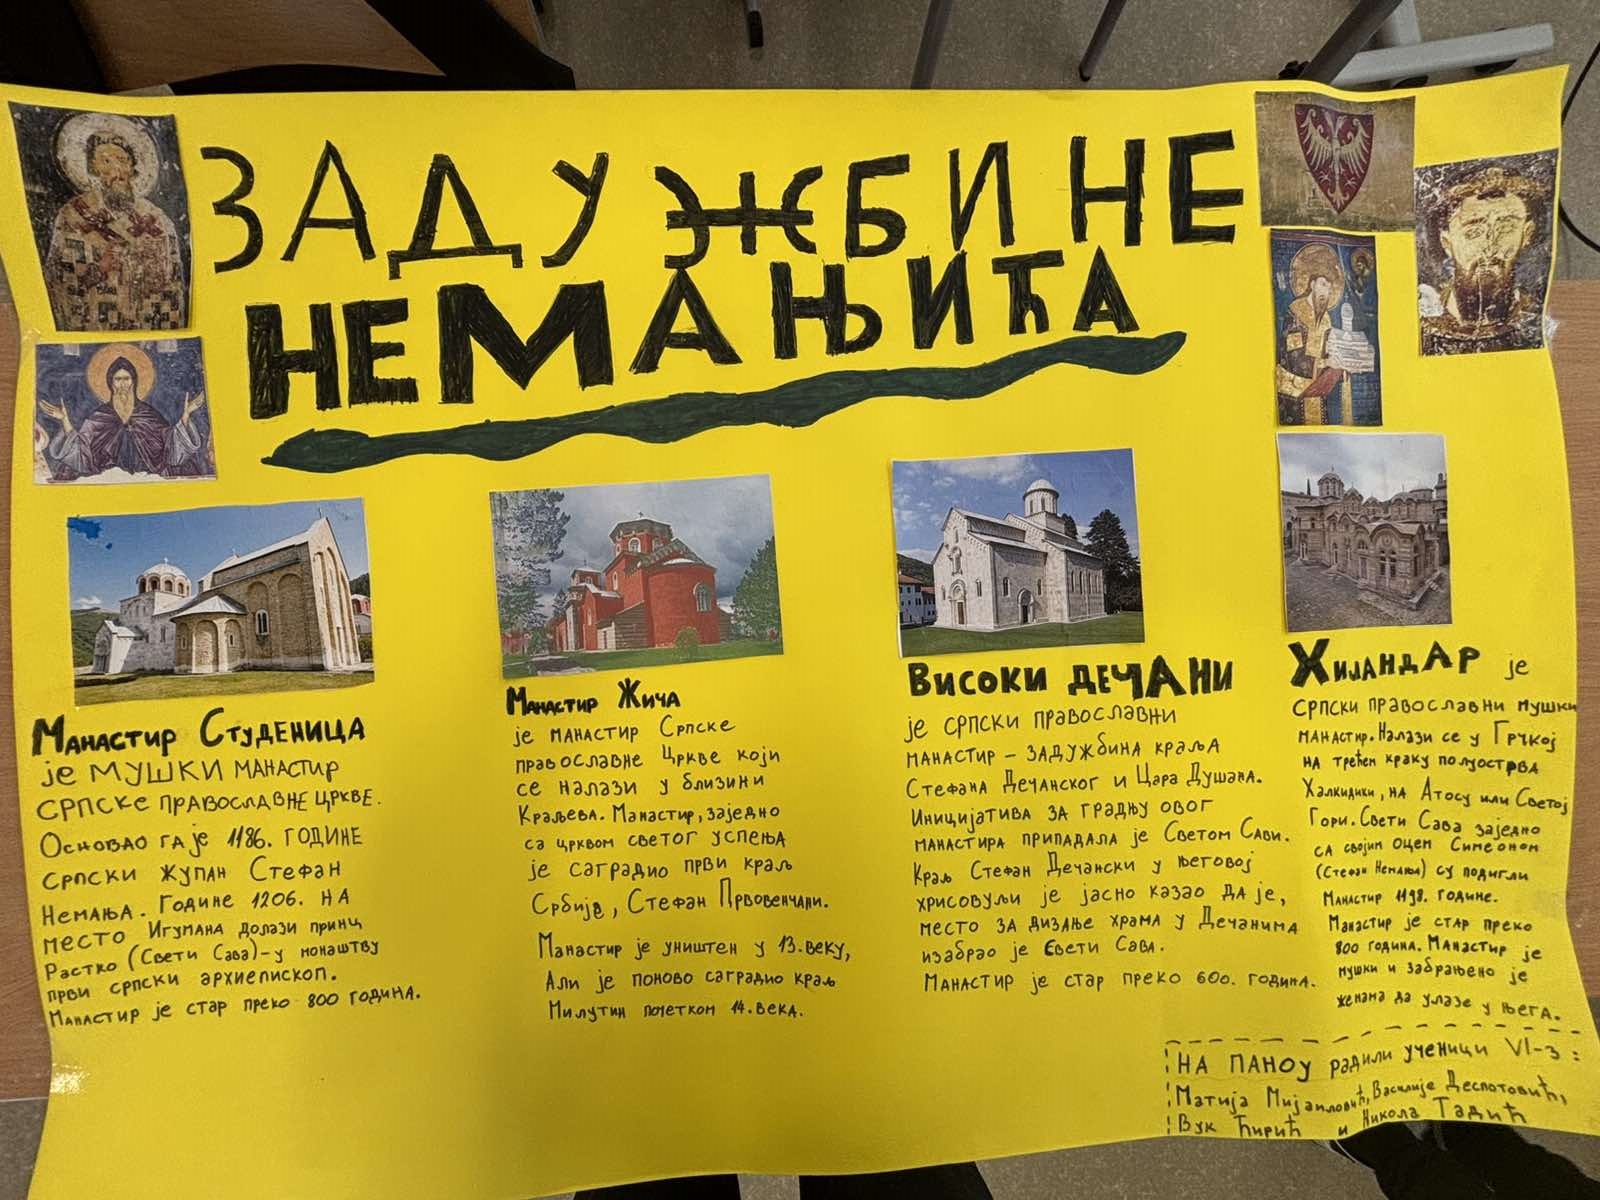 ЗАДУЖБИНЕ
НЕМАЊИЋА
Манастир Студеница
је мушки манастир
српске православне цркве.
Основао га је 1186. године
српски жупан Стефан
Немања. Године 1206. на
место Игумана долази принц
Растко (Свети Сава)-у монаштву
први српски архиепископ.
Манастир је стар преко 800 година.
Манастир Жича
је манастир Српске
православне Цркве који
се налази у близини
Краљева. Манастир, заједно
са црквом светог успења
је саградио први краљ
Србије, Стефан Првовенчани.
Манастир је уништен у 13. веку,
Али је поново саградио краљ
Милутин почетком 14. века.
Високи Дечани
је српски православни
манастир – задужбина краља
Стефана Дечанског и Цара Душана.
Иницијатива за градњу овог
манастира припадала је Светом Сави.
Краљ Стефан Дечански у његовој
хрисовуљи је јасно казао да је,
место за дизање храма у Дечанима
изабрао је Свети Сава.
Манастир је стар преко 600. година.
Хиландар је
српски православни мушки
манастир. Налази се у Грчкој
на трећем краку полуострва
Халкидики, на Атосу или Светој
Гори. Свети Сава заједно
са својим оцем Симеоном
(Стефан Немања) су подигли
Манастир 1198. године.
Манастир је стар преко
800 година. Манастир је
мушки и забрањено је
женама да улазе у њега.
На паноу радили ученици VI-3:
Матија Мијаиловић, Василије Деспотовић,
Вук Ћирић и Никола Тадић